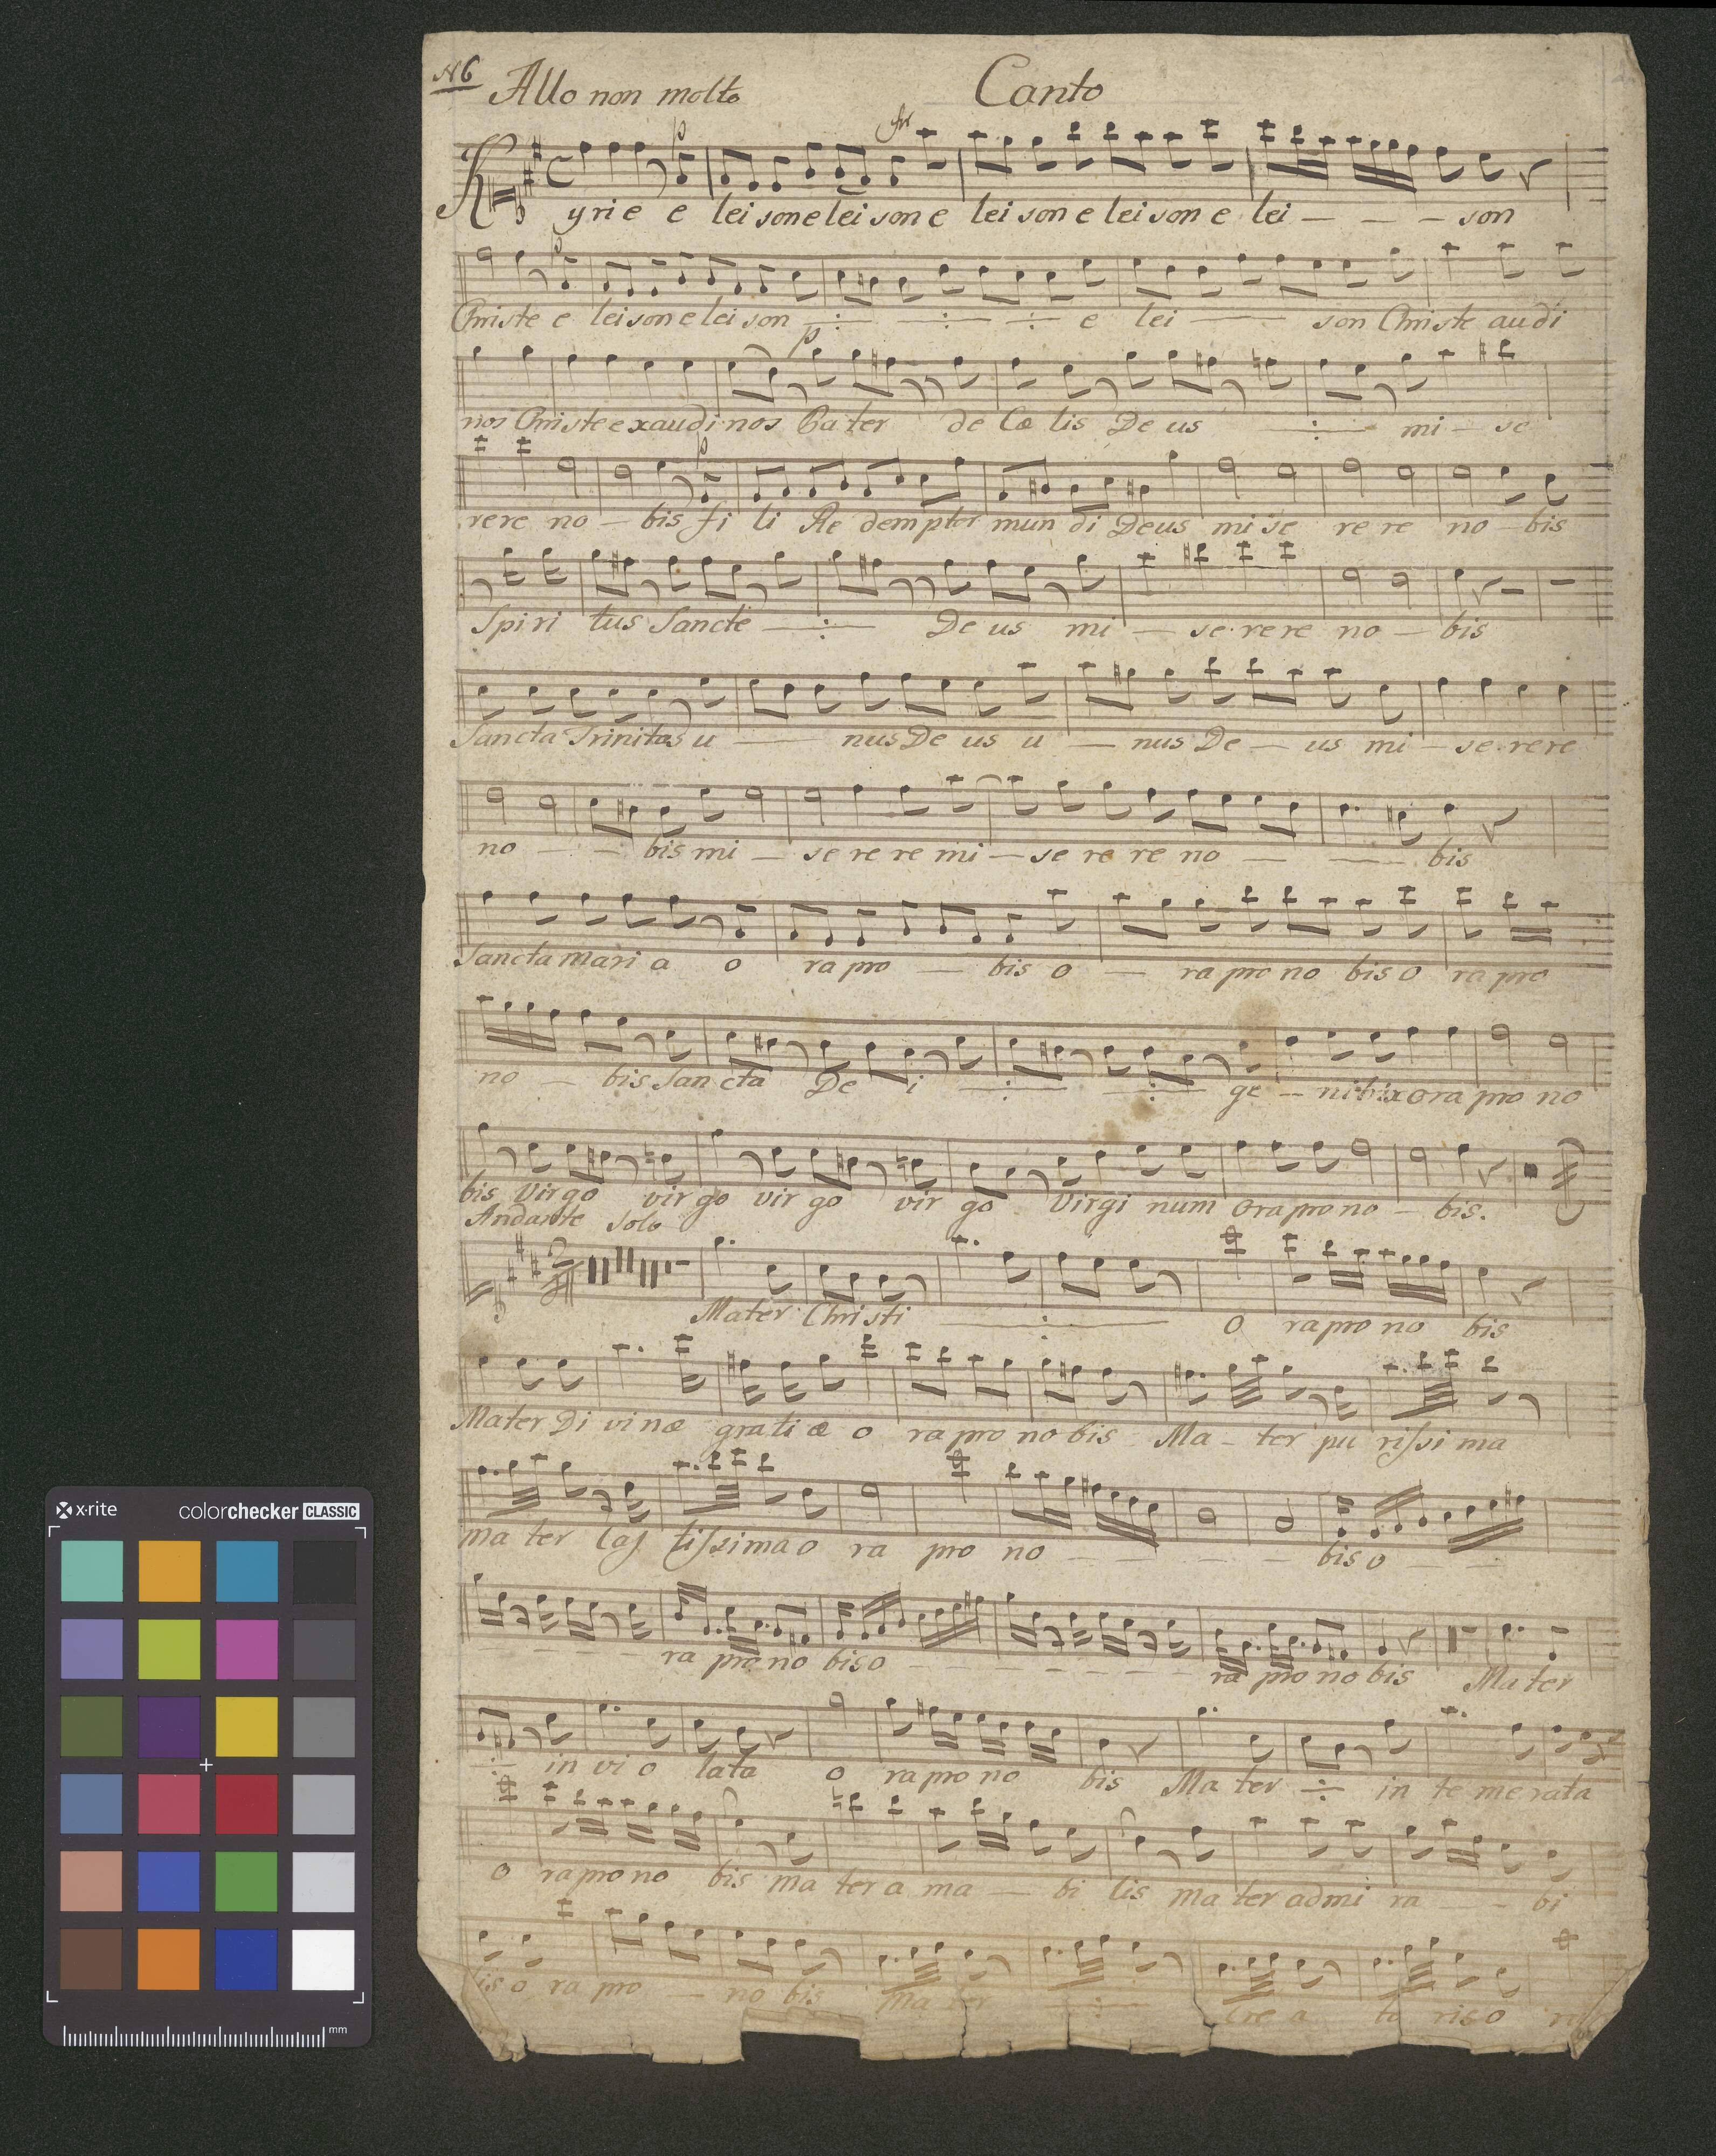 N6 Allo non molto Canto
p for
Kyrie e lei son e lei son e lei son e lei son e lei — — — son
p
Christe e leison e lei son —:— —:— —:— e lei —— son Christe audi
p
nos Christe exaudi nos Pater de Cœ lis De us —:— mi — se
p
rere no — bis fi li Re demptor mun di Deus mi se re re no — bis
Spiri tus Sancte —:— De us mi — se rere no — bis
Sancta Trinitas u — nus De us u — nus De — us mi — se rere
no — — bis mi — se re re mi — se re re no — — bis
Sancta mari a o ra pro — bis o — ra pro no bis o ra pro
no — bis San cta De i —:— —:— ge — nitrix ora pro no
bis Virgo vir go vir go vir go Virgi num Ora pro no — bis.
Andante Solo
Mater Christi —:— O ra pro no bis
Mater Di vinæ grati æ o ra pro no bis Ma — ter pu rissi ma
ma ter Cas tissima o ra pro no — — — — — bis o — —
— — — — ra pro no bis o — — — — — — ra pro no bis Mater
-:- in vi o lata o ra pro no bis Ma ter -:- in te me rata
o ra pro no bis ma ter a ma — bi lis ma ter admi ra — — bi
lis o ra pro — no bis ma ter —:— Cre a to ris o ra
x-rite colorchecker CLASSIC
mm